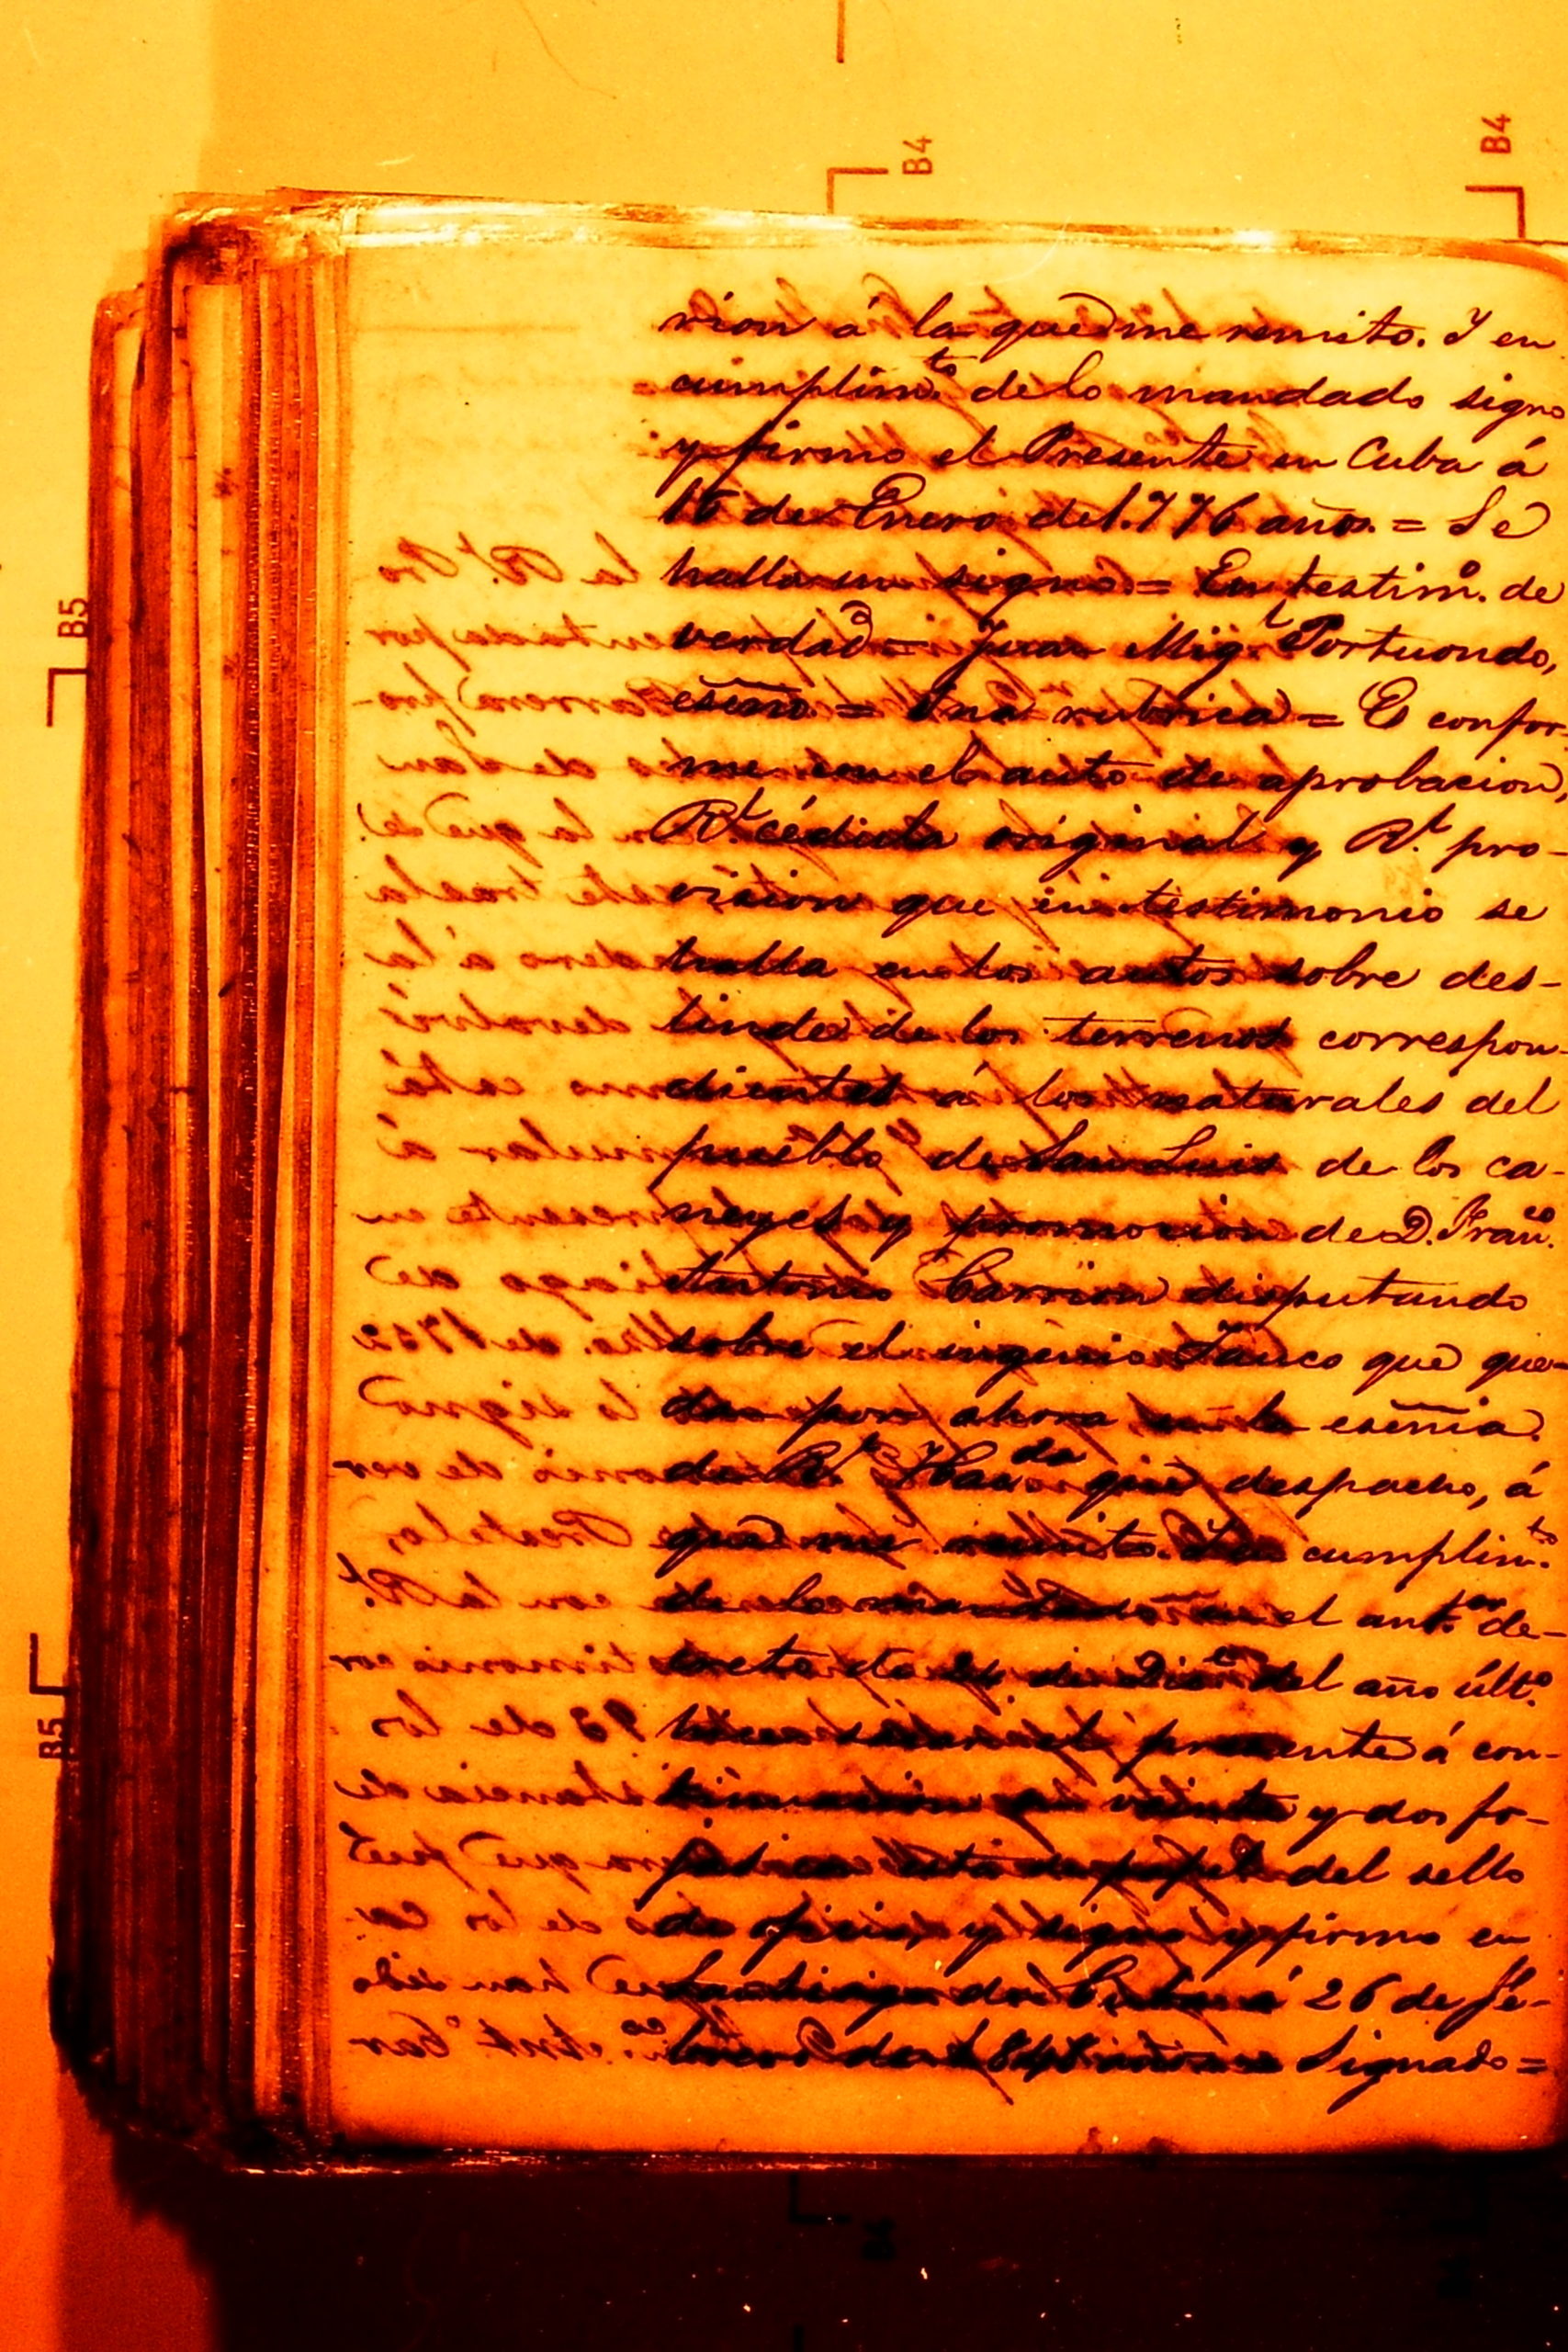 B4
B4
B5
B5
vion á la que me remito. Y en
cumplim.to de lo mandado signo
y firmo el Presente en Cuba á
15 de Enero de 1.776 años. = Se
halla un signo = En testim.o de
verdad = Juan Mig.l Portuondo,
esñno = Una rubrica = Es confor-
me con el auto de aprobacion,
R.l cédula original y R.l pro-
vision que en testimonio se
halla en los autos sobre des-
linde de los terrenos correspon-
dientes á los naturales del
pueblo de San Luis de los ca-
neyes y promocion de D. Fran.co
Antonio Carrion disputando
sobre el ingenio Sauco que que-
dan por ahora en la esñnia.
de R.l Haz.da que despacho, á
que me remito. En cumplim.to
de lo mandado en el ant.or de-
creto de 24 de Dic.e del año últ.o
presente á con-
tinuacion de veinte y dos fo-
jas con esta de papel del sello
de oficio, y signo y firmo en
Santiago de Cuba á 26 de Fe-
brero de Signado =